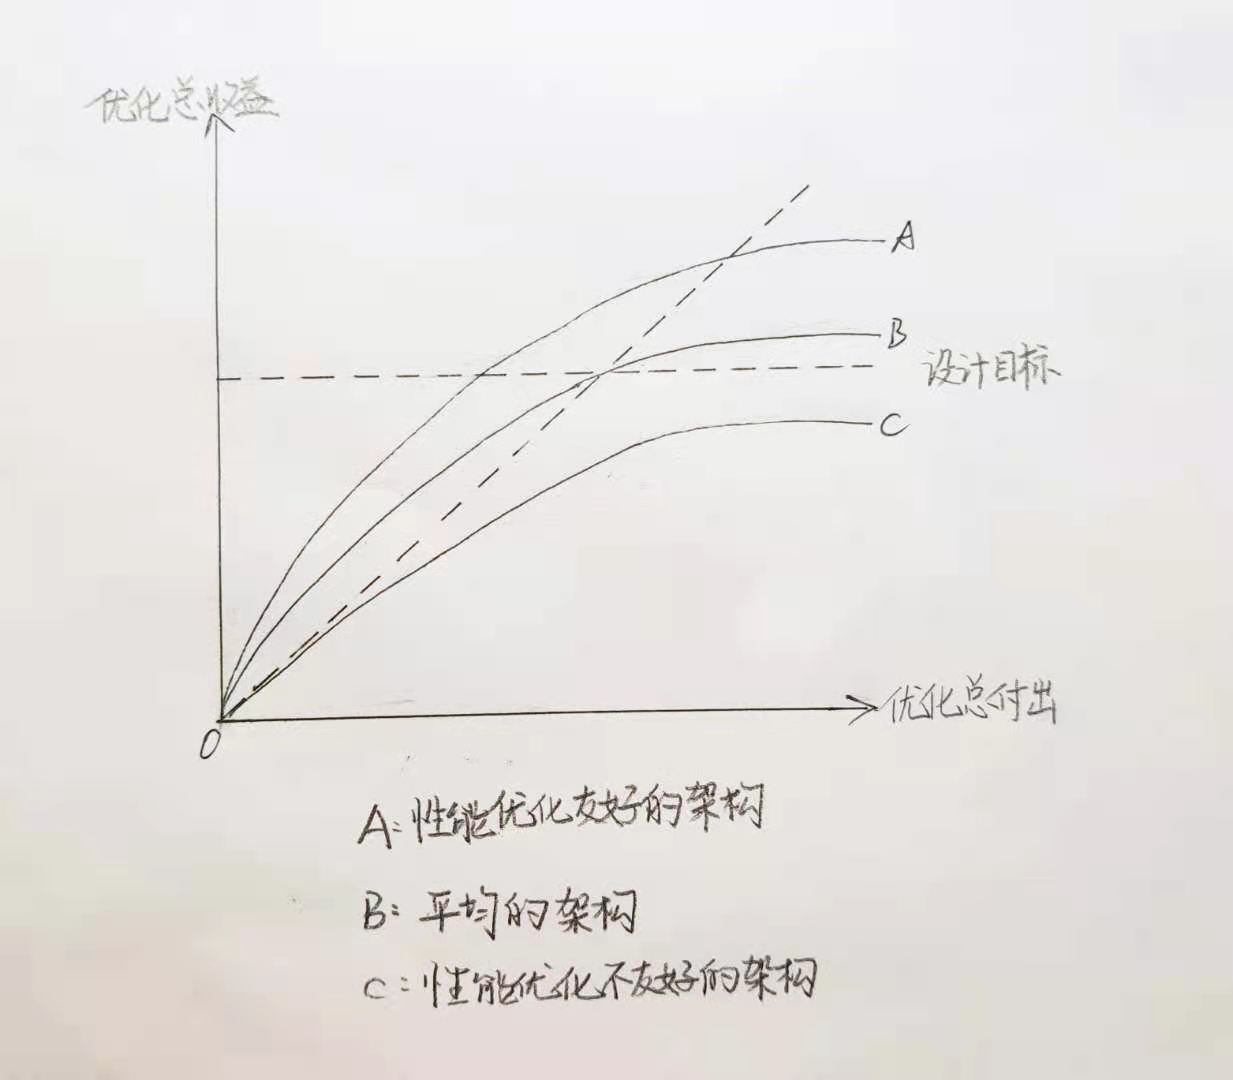 优化总收益
A
B
设计目标
C
优化总付出
O
A:性能优化友好的架构
B:平均的架构
C:性能优化不友好的架构